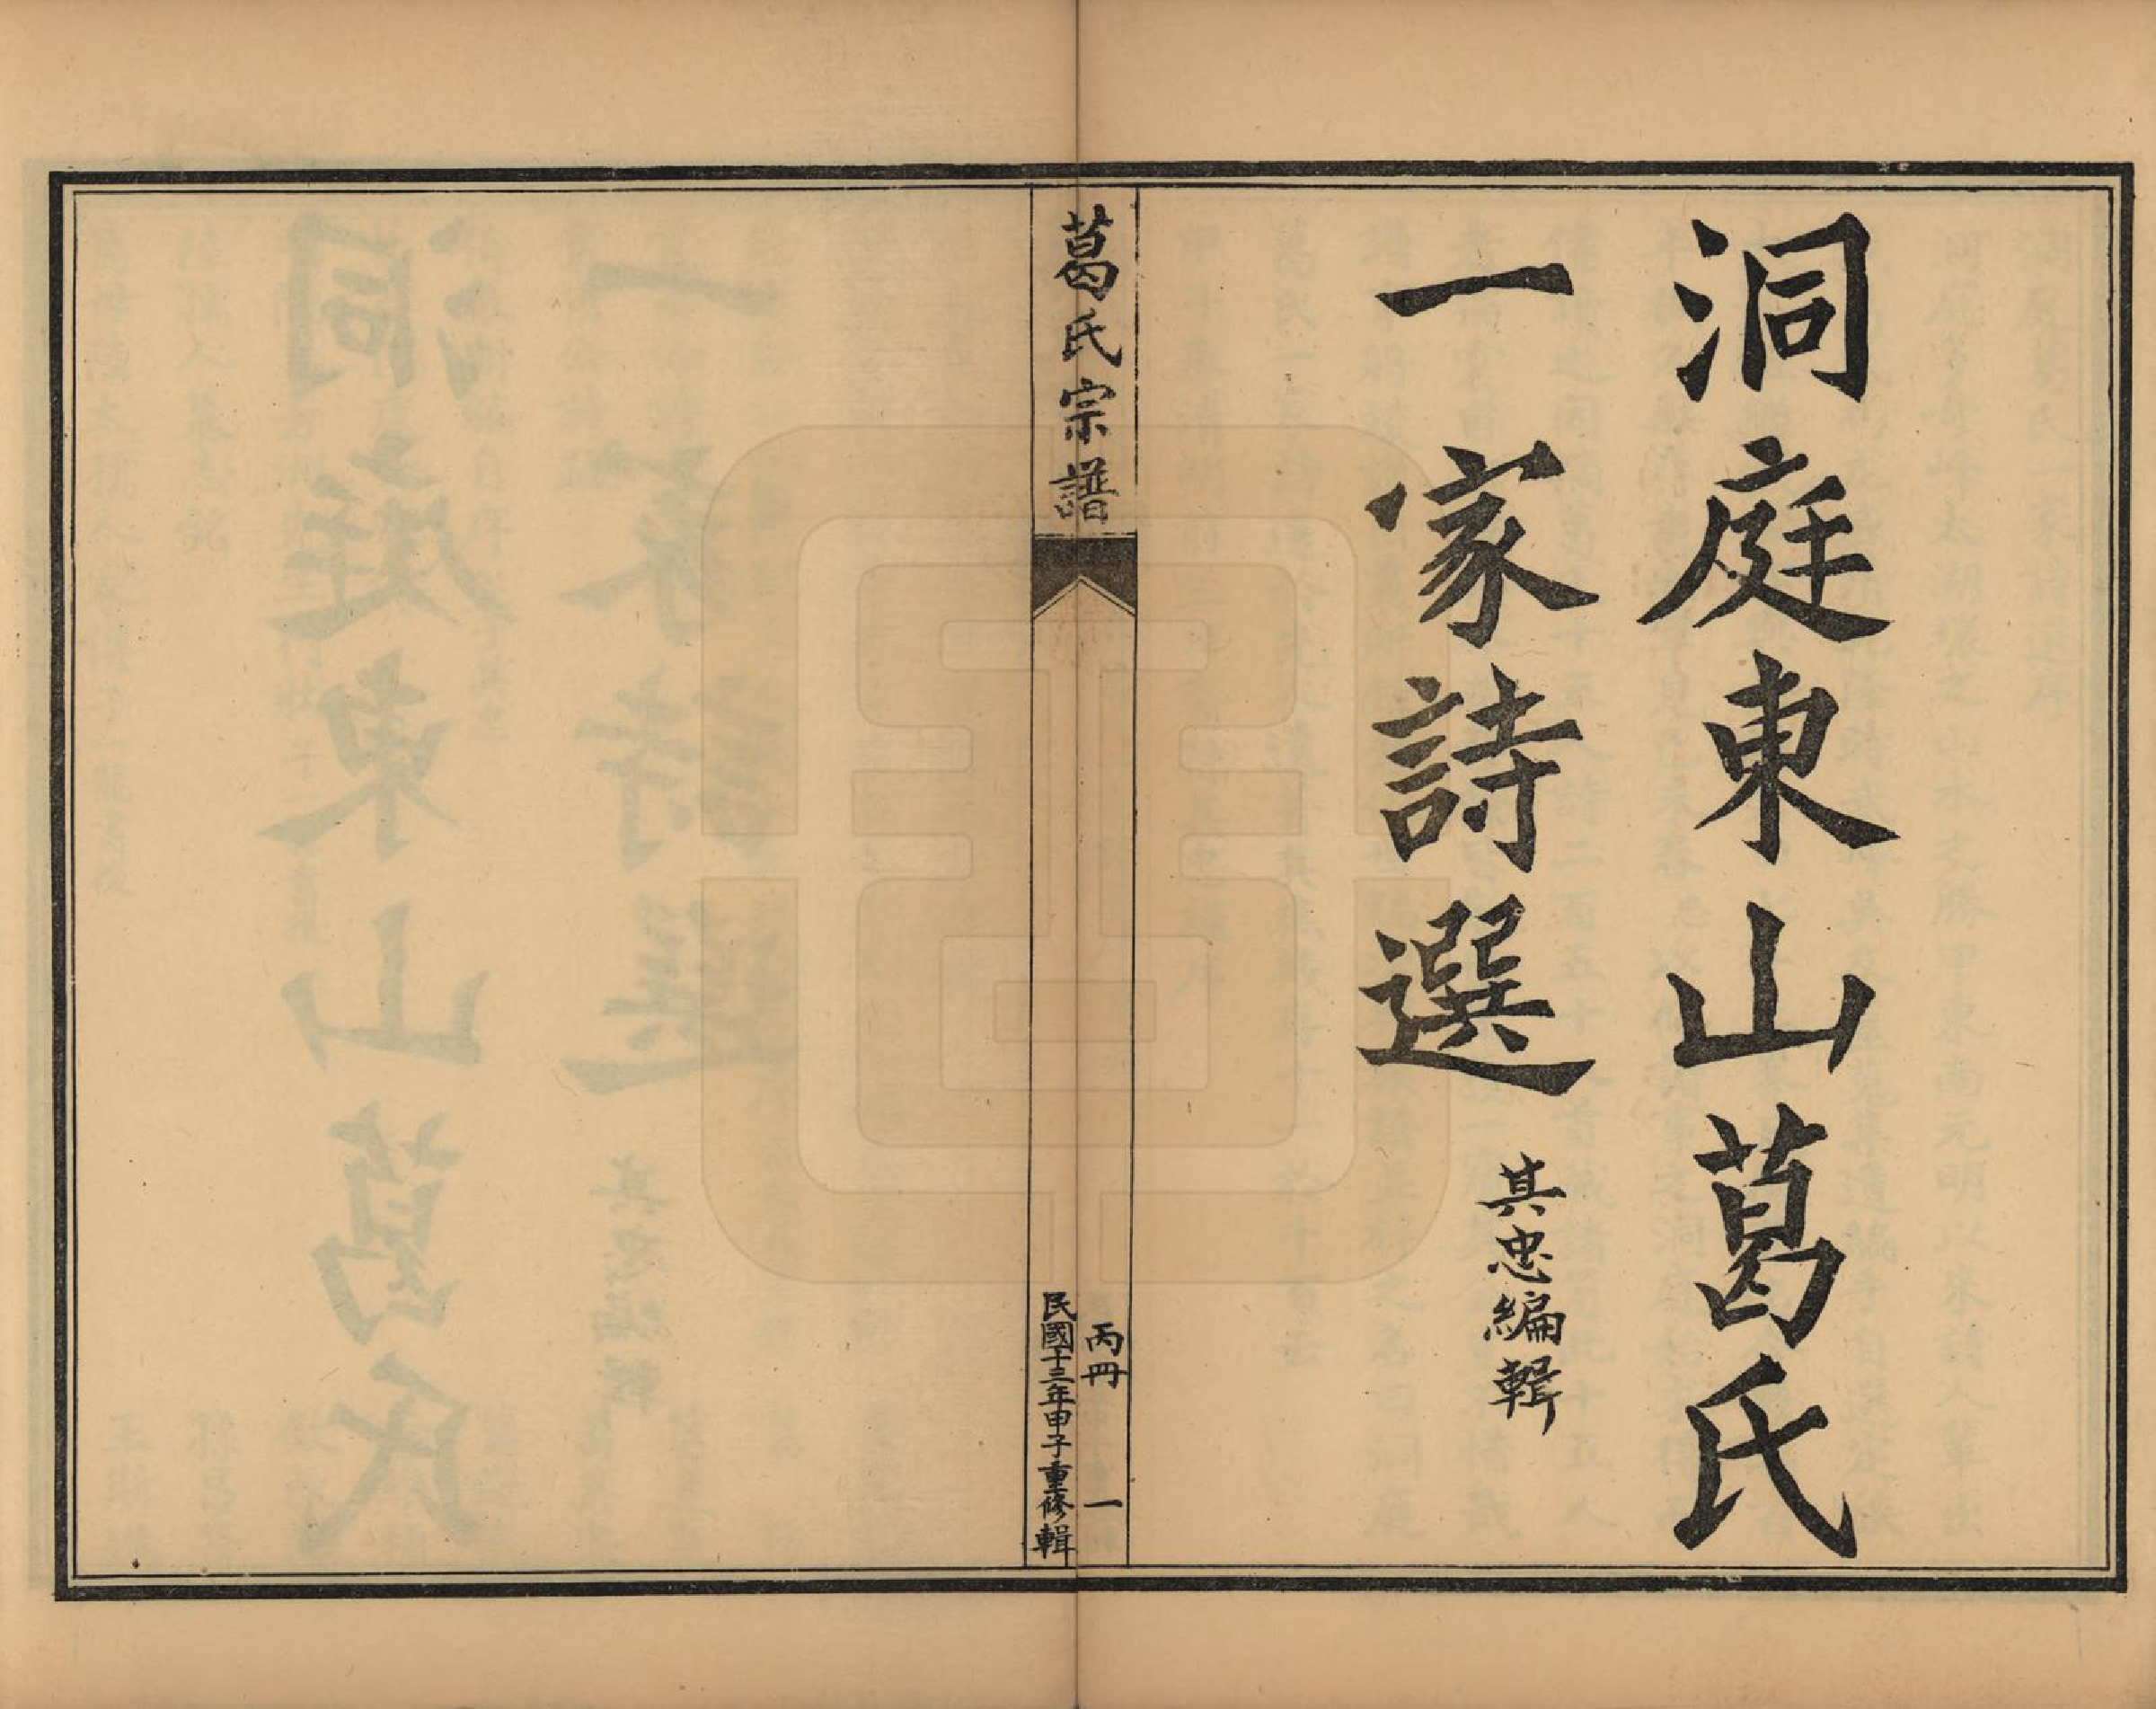 洞庭東山葛氏
一家詩選
其忠編輯
葛氏宗譜
丙冊
一
民國十三年甲子重修輯